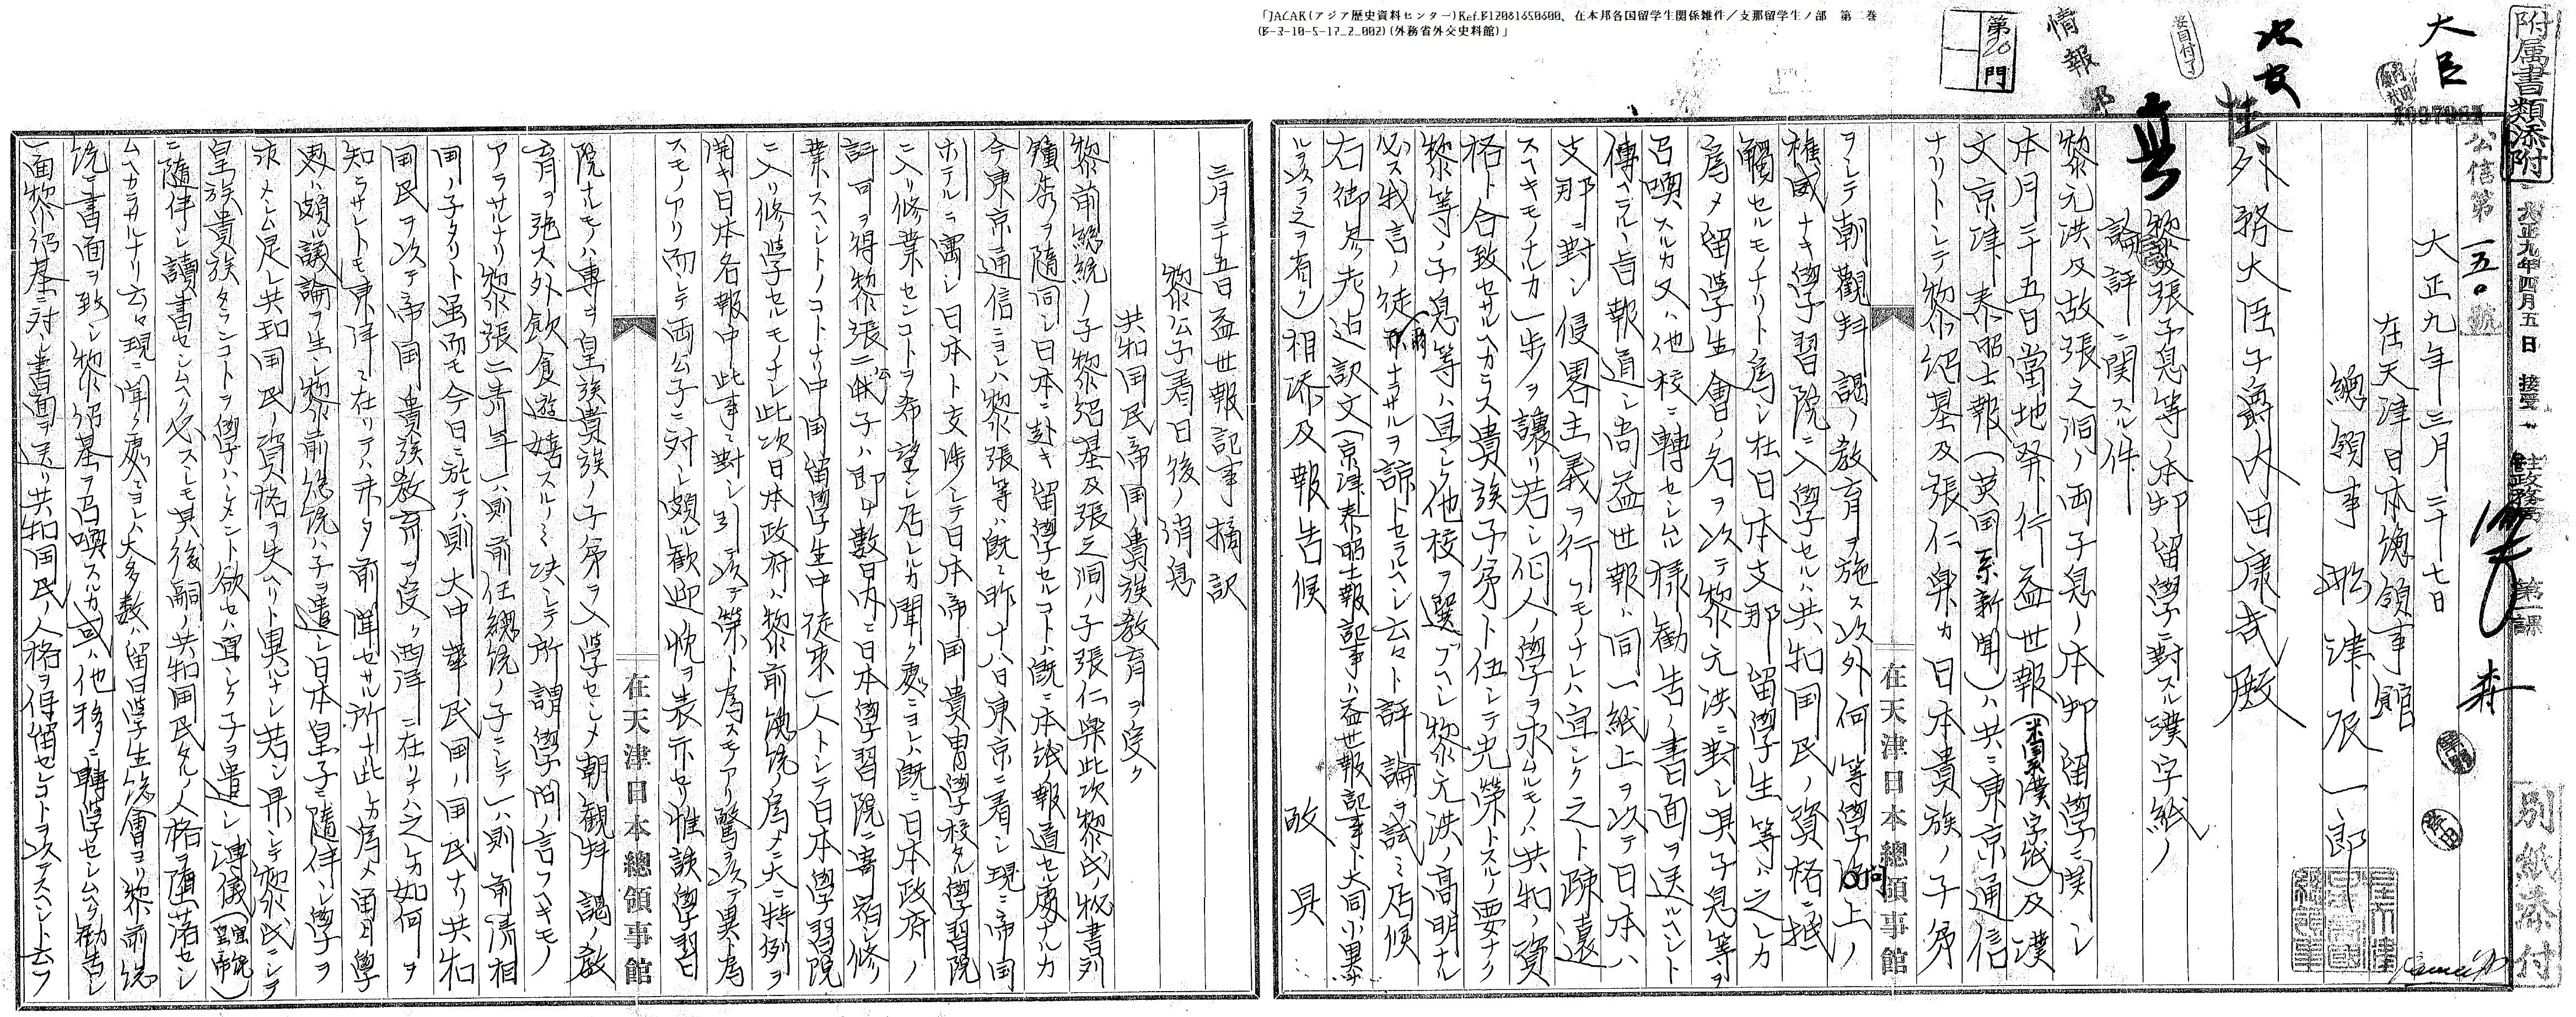 「JACAR(アジア歴史資料センター)Ref.B12081650600、在本邦各国留学生関係雑件／支那留学生ノ部 第二巻
(B-3-10-5-17_2_002)(外務省外交史料館)」
附属書類添附
大正九年四月五日 接受
主政務局 第一課
別紙添付
大臣
公信第一五〇號
大正九年三月二十七日
在天津日本総領事館
總領事 船津辰一郎
外務大臣子爵内田康哉殿
情報部
第20門
黎張子息等ノ本邦留學ニ對スル漢字紙ノ
論評ニ関スル件
黎元洪及故張之洞ノ両子息ノ本邦留學ニ関シ
本月二十五日當地発行益世報(米国系漢字紙)及漢
文京津泰晤士報(英国系新聞)ハ共ニ東京通信
ナリトシテ黎紹基及張仁樂カ日本貴族ノ子弟
ヲシテ朝觀拜謁ノ教育ヲ施ス以外何等學問上ノ
権威ナキ學習院ニ入學セルハ共和国民ノ資格ニ抵
觸セルモノナリト為シ在日本支那留學生等ハ之レカ
為メ留學生會ノ名ヲ以テ黎元洪ニ對シ其子息等ヲ
召喚スルカ又ハ他校ニ轉セシム様勧告ノ書面ヲ送ルヘシト
傳ヘラル旨報道シ尚益世報ハ同一紙上ヲ以テ日本ハ
支那ニ對シ侵畧主義ヲ行フモノナレハ宜シク之ト疎遠
スヘキモノナルカ一歩ヲ讓リ若シ個人ノ學ヲ求ムルモノハ共和ノ資
格ト合致セサルヘカラス貴族子弟ト伍シテ光榮トスルノ要ナク
黎等ノ子息等ハ宜シク他校ヲ選ブヘシ黎元洪ノ高明ナル
必ス我言ノ徒爾ナラサルヲ諒トセラルヘシ云々ト評論ヲ試ミ居候
右御参考迄訳文(京津泰晤士報記事ハ益世報記事ト大同小異ナ
ルヲ以テ之ヲ省ク)相添及報告候
敬具
在天津日本總領事館
三月二十五日益世報記事摘訳
黎公子着日後ノ消息
共和国民帝国ノ貴族教育ヲ受ク
黎前総統ノ子黎紹基及張之洞ノ子張仁樂此次黎氏ノ秘書刘
鐘秀ヲ隨同シ日本ニ赴キ留學セルコトハ既ニ本紙ノ報道セル處ナルカ
今東京通信ニヨレハ黎張等ハ既ニ昨十八日東京ニ着シ現ニ帝国
ホテルニ寓シ日本ト交渉シテ日本帝国貴冑學校タル學習院
ニ入リ修業センコトヲ希望シ居レルカ聞ク處ニヨレハ既ニ日本政府ノ
許可ヲ得黎張二公子ハ即チ數日内ニ日本學習院ニ寄宿シ修
業スヘシトノコトナリ中国留學生中從来一人トシテ日本學習院
ニ入リ修學セルモノナシ此次日本政府ハ黎前総統ノ為メニ大ニ特例ヲ
開キ日本各報中此事ニ對シ引以テ榮ト為スモアリ驚ヲ以テ異ト為
スモノアリ而シテ両公子ニ対シ頗ル歓迎ノ忱ヲ表示セリ惟該學習
在天津日本總領事館
院ナルモノハ専ラ皇族貴族ノ子弟ヲ入學セシメ朝觀拜謁ノ教
育ヲ施ス外飲食遊嬉スルノミ決シテ所謂學問ノ言フヘキモノ
アラサルナリ黎張二青年ハ一ハ則前任總統ノ子ニシテ一ハ則前清相
国ノ子タリト虽而モ今日ニ於テハ則大中華民国ノ国民ナリ共和
国民ヲ以テ帝国ノ貴族教育ヲ受ク西洋ニ在リテハ之ヲ如何ヲ
知ラサレトモ東洋ニ在リテハ未タ前聞セサル所ナ此カ為メ通日學
界ハ頗ル議論ヲ生シ黎前総統ハ子ヲ遣シ日本皇子ニ隨伴シ學ヲ
求メシム是レ共和国民ノ資格ヲ失ヘリト異ナシ若シ果シテ黎氏ニシテ
皇族貴族タランコトヲ學ハシメント欲セハ宜シク子ヲ遣シ溥儀(宣統帝)
ニ隨伴シ讀書セシムヘシ必スシモ其後嗣ノ共和国民タルノ人格ヲ堕落セシ
ムヘカラサルナリ云々現ニ聞ク處ニヨレハ大多数ハ留日學生総會ヨリ黎前総
統ニ書面ヲ致シ黎紹基ヲ召喚スルカ或ハ他移ニ轉學セシムヘク勧告シ
一面黎紹基ニ対シ書面ヲ送リ共和国民ノ人格ヲ保留センコトヲ以テスヘシト云フ